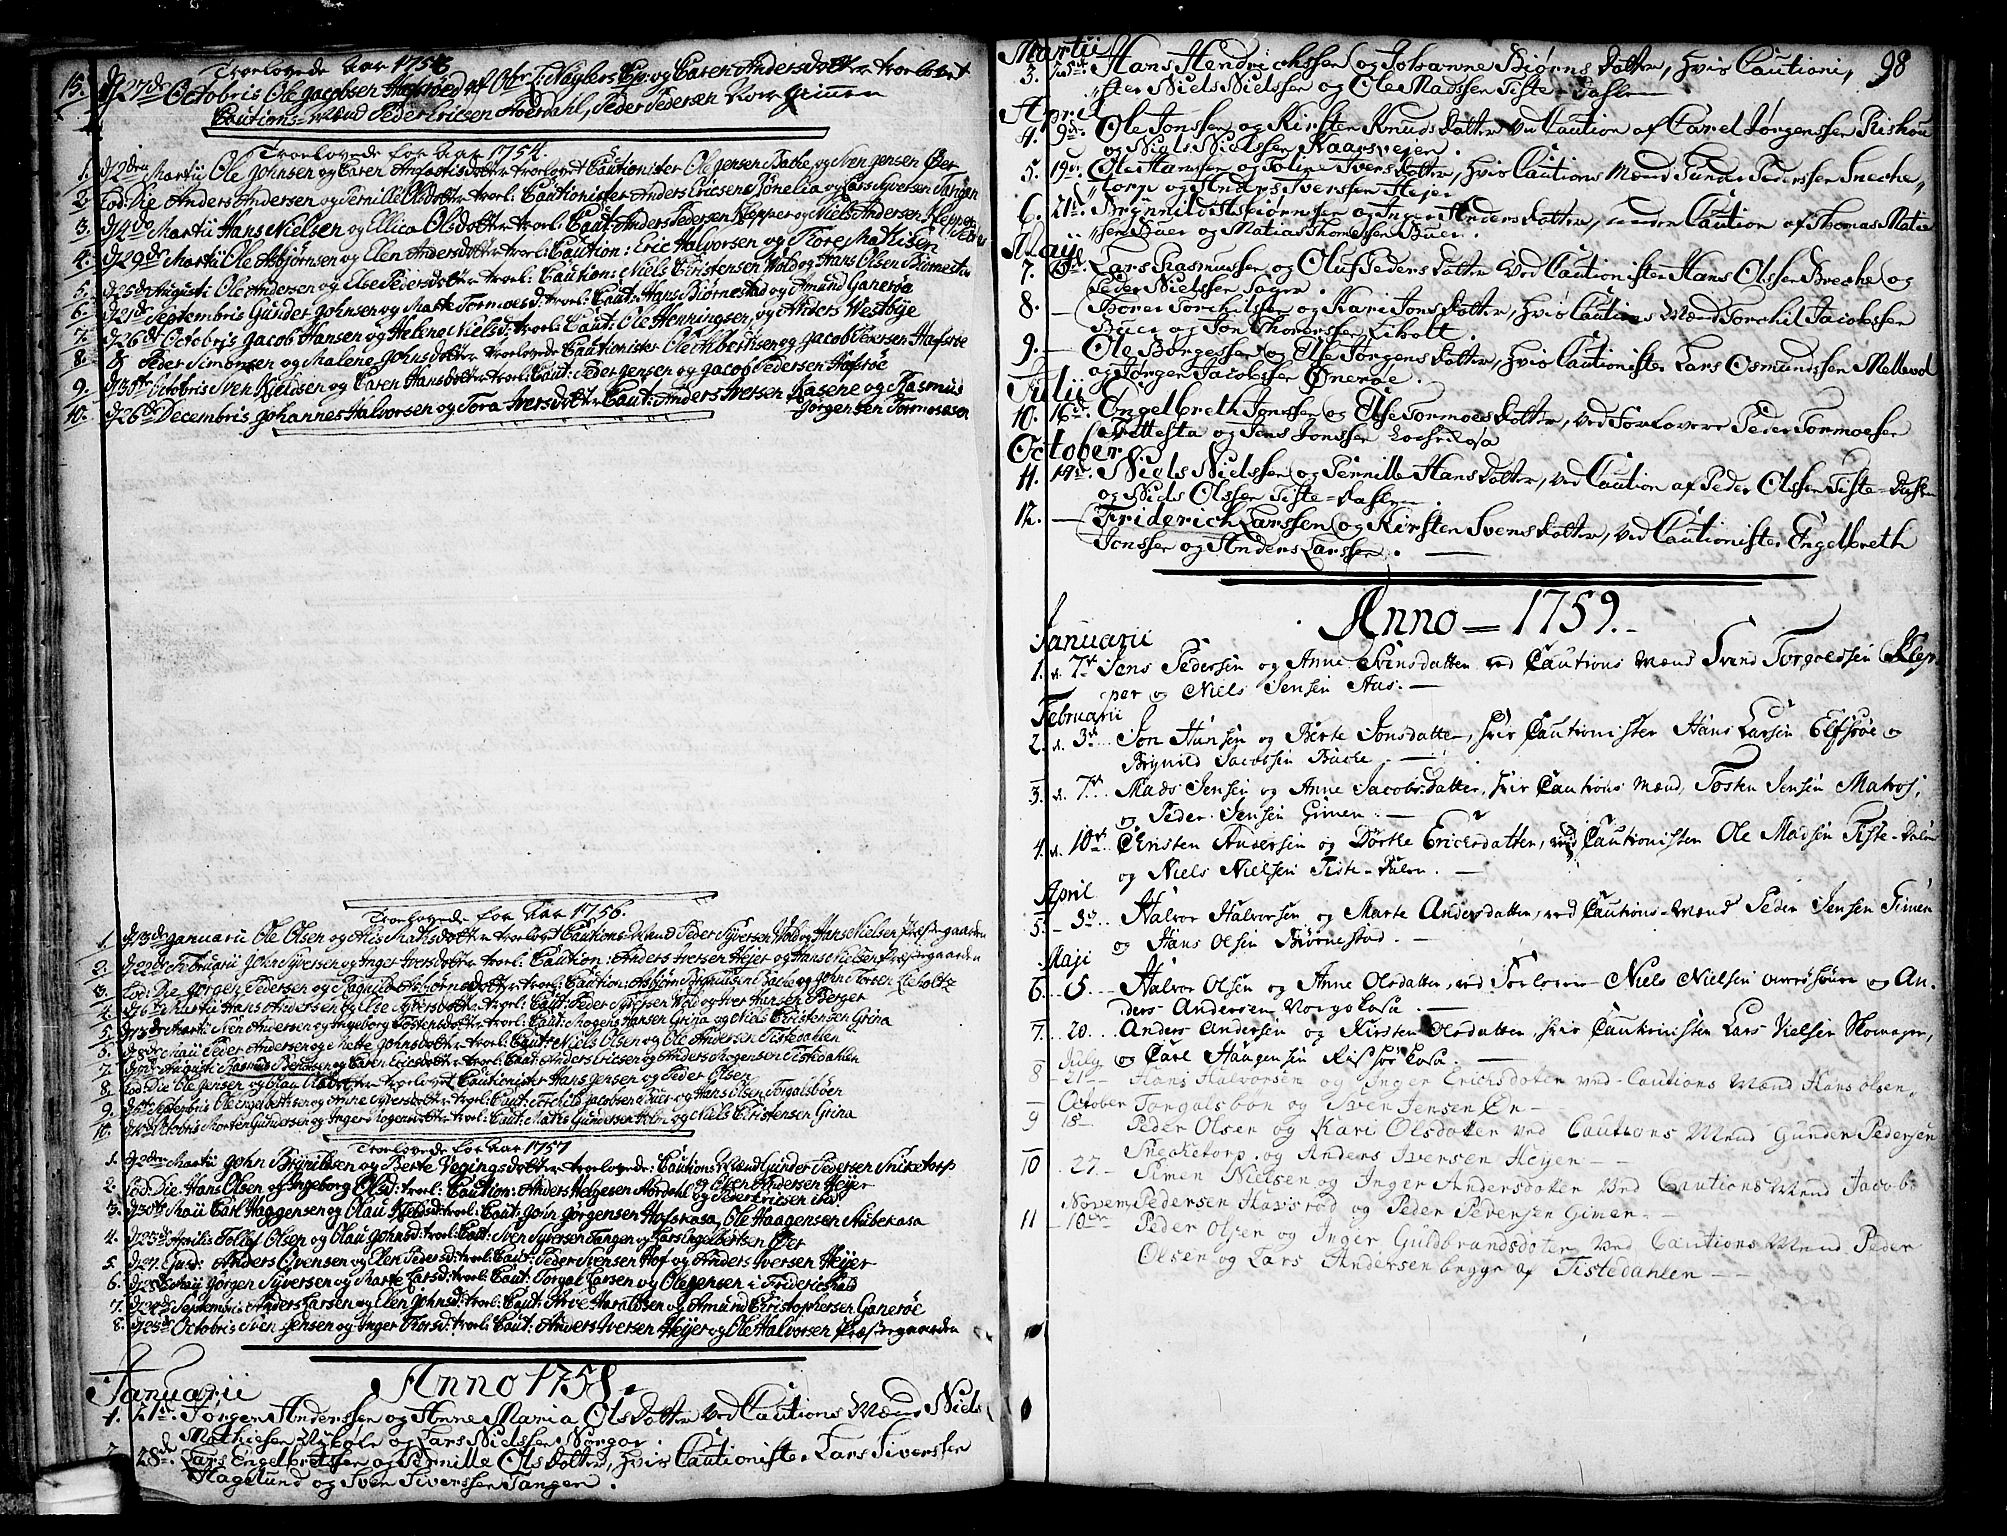 Troelovede Aar 1753
15. d 27de Octobris Ole Jacobsen og Caren Andersdotter troelovet
Cautions-Mænd Peder Ericsen Aaerdahl, Peder Pedersen
Troelovede for Aar 1754.
1. d 2den Martii Ole Johnsen og Caren troelovet Cautionister Ole Jensen Bache og Sven Jensen Øer
2. Eod: Die Anders Andersen og Pernille Olsdotter troel: Cautionister Anders Ericsen Bønelia og Lars Syversen Tangen
3. d 14de Martii Hans Nielsen og Ellica Olsdotter troel: Caut: Anders Pedersen Klepper og Niels Andersen
4. d 29de Martii Ole Asbjørnsen og Elen Andersdotter troel: Caution: Eric Halvorsen og Tore Mathisen
5. d 25de Augusti Ole Andersen og Else Peiersdotter troel: Caution: Niels Christensen Wold og Hans Olsen Biørnestad
6. d 21de Septembris Gunder Johnsen og Marte Tormoesd: troel: Caut: Hans Biørnestad og Amund Ganerøa
7. d 26de Octobris Jacob Hansen og Helene Nielsd: troel: Caut: Ole Henningsen, og Anders Westbye
8. Peder Simonsen og Malene Johnsdotter troelovede Cautionister Ole og Jacob Pedersen Hafsrøe
9. Octobris Sven Kieldsen og Caren Hansdotter troel: Caut: Peder Jensen og Jacob Pedersen Hafsrøe
10. d 26de Decembris Johannes Halvorsen og Tora Iversdotter Caut: Anders Iversen Kasene og Rasmus
Jørgensen
Troelovede for Aar 1756.
1. d 3de Januarii Ole Olsen og troelovet Cautions-Mænd Peder Syversen Wold og Hans Nielsen Præstegaarden
2. d 22de Februarii John Syversen og Inger Iversdotter troel: Caution: Anders Iversen Heyer og Hans Nielsen Præstegaarden
3. Eod: Die Jørgen Pedersen og Asbiørnsdotter troel: Caution: Asbiørn Bache og John Torsen Liholtz
4. d 6te Martii Hans Andersen og Else Syversdotter troel: Caut: Peder Syversen Wold og Iver Hansen Berger
5. d 13de Martii Sven Andersen og Ingeborg Tostensdotter troel: Caut: Mogens Hansen Grina og Niels Christensen Grina
6. Maii Peder Andersen og Mette Johnsdotter troel: Caut: Niels Olsen og Ole Andersen Tistedahlen
7. Augusti Rasmus og Caren Ericsdotter troel: Caut: Anders Ericsen og Anders Mogensen Tistedahlen
8. Eod: Die Ole Jensen og Olau troelovet Cautionister Hans Jensen og Peder Olsen
9. Septembris Ole Engelbertsen og Anne Syversdotter troel: Caut: Torchild Jacobsen Buer og Hans Olsen Torgalsbøen
10. Octobris Morten Gundersen og Inger Mogensdotter troel: Caut: Mathis Gundersen Holm og Niels Christensen Grina
Troelovede for Aar 1757
1. d 2den Martii John Brynilsen og Berte Vegingsdotter troelovede: Cautions Mænd Gunder Pedersen Sniketorp
2. Eod: Die Hans Olsen og Ingeborg Olsd: troel: Caution: Anders Helgesen Aordahl og Sven Andersen Heyer
3. d 30te Maii Carl Haggensen og Olau Nielsd: troel: Caut: John Jørgensen Hafskasa, Ole Haagensen Stubekasa
4. d 23de Aprilis Tollef Olsen og Olau Johnsd: troel: Caut: Sven Syversen Tangen og Lars Engelbertsen Øer
5. d 27. Ejusd: Anders Ovensen og Elen Pedersd: troel: Caut: Peder Svensen Hof og Anders Iversen Heyer
6. Maii Jørgen Syversen og Marte Larsd: troel: Caut: Torgal Larsen og Ole Jensen i Friderichald
7. Septembris Anders Larsen og Elen Johnsd: troel: Caut: Arve Haraldsen og Amund Christophersen Ganerøe
8. d 25de Octobris Sven Jensen og Inger Torsd: troel: Caut: Anders Iversen Heyer og Ole Halvorsen Præstegaarden
Anno 1758.
Januarii
1. 21d. Jørgen Anderssen og Anne Maria Olsdotter ved Cautions Mænd Niels
Mathiesen og Lars Nielssen Norgar.
28de. Lars Engelbretssen og Pernille Olsdotter, hvis Cautionister Lars Siverssen
Hagelund og Sven Siverssen Tangen.
98
Martii
3. Hans Hendrichssen og Johanne Biørnsdotter, hvis Cautioni,
ster Niels Nielssen og Ole Madssen Tiste-dahlen
April
4. 9de. Ole Jonssen og Kirsten Knudsdotter ved Caution af Carel Jørgenssen Rishou
og Niels Nielssen Kaarsvejen.
5. 19d. Ole Hanssen og Joline Iversdotter, hvis Cautions Mænd Gunder Pederssen Sneche,
torp og Anders Iverssen Heyer
6. 21d. Brynnild Asbiørnssen og Inger Andersdotter, under Caution af Thomas Matis
sen Buer og Matias Thomessen Buer.
Mayi
7. Lars Rasmussen og Oluf Pedersdotter ved Cautionister Hans Olssen Breche og
Peder Nielssen Sager.
8. — Thorer Torchilssen og Kari Jonsdotter, hvis Cautions Mænd Torchil Jacobssen
Buer og Jon Thorerssen Liholt.
9. — Ole Borgessen og Else Jørgensdotter, hvis Cautionister Lars Osmundssen Mellerød
og Jørgen Jacobssen Ønerøe.
Julii
10. 16de. Engelbreth Jonssen og Else Tormoesdotter, ved Forlovere Peder Tormoessen
Tittesta og Jens Jonssen
October
11. 14de. Niels Nielssen og Pernille Hansdotter, ved Caution af Peder Olssen Tiste-dahlen
og Niels Olssen Tiste-dahlen.
12. — Friderich Larssen og Kirsten Svensdotter, ved Cautionister Engelbreth
Jonssen og Anders Larssen.
Anno — 1759.
Januarii
1. d. 7de Jens Pedersen og Anne Svensdatter ved Cautions Mænd Svend Torgalssen Klep
per og Niels Jensen Aas.
Februarii
2. d. 3de Jon Hansen og Berte Jonsdatter, hvis Cautionister Hans Larsen Elfsrøe og
Brynild Jacobsen Bache.
3. d. 7de Mads Jensen og Anne Jacobsdatter, hvis Cautions Mænd, Tosten Jensen Matros,
og Peder Jensen Gimen.
4. d. 10de Christen Andersen og Dorthe Ericksdatter, ved Cautionister Ole Madsen Tiste-Dalen
og Niels Nielsen Tiste-Dalen.
April
5. 3de Halvor Halvorsen og Marte Andersdatter, ved Cautions-Mænd Peder Jensen Gimen
og Hans Olsen Biørnestad.
Maji
6. 5. Halvor Olsen og Anne Olsdatter, ved Forlovere Niels Nielsen og An,
ders Andersen
7. 20. Anders Andersen og Kirsten Olsdatter, hvis Cautionister Lars Nielsen Skomager,
og Carl Haagensen
July
8 21 — Hans Halvorsen og Inger Ericksdotter ved Cautions Mænd Hans Olsen
Torgalsbøn og Sven Jensen Øn
October
9 15 — Peder Olsen og Kari Olsdotter ved Cautions Mænd Gunder Pedersen
Sneketorp og Anders Iversen Heyer
10 27 — Simen Nielsen og Inger Andersdotter ved Cautions Mænd Jacob
Pedersen Hafsrød og Peder Pedersen Gimen
Novem
11 10de Peder Olsen og Inger Guldbrandsdotter ved Cautions Mænd Peder
Olsen og Lars Andersen begge af Tistedahlen